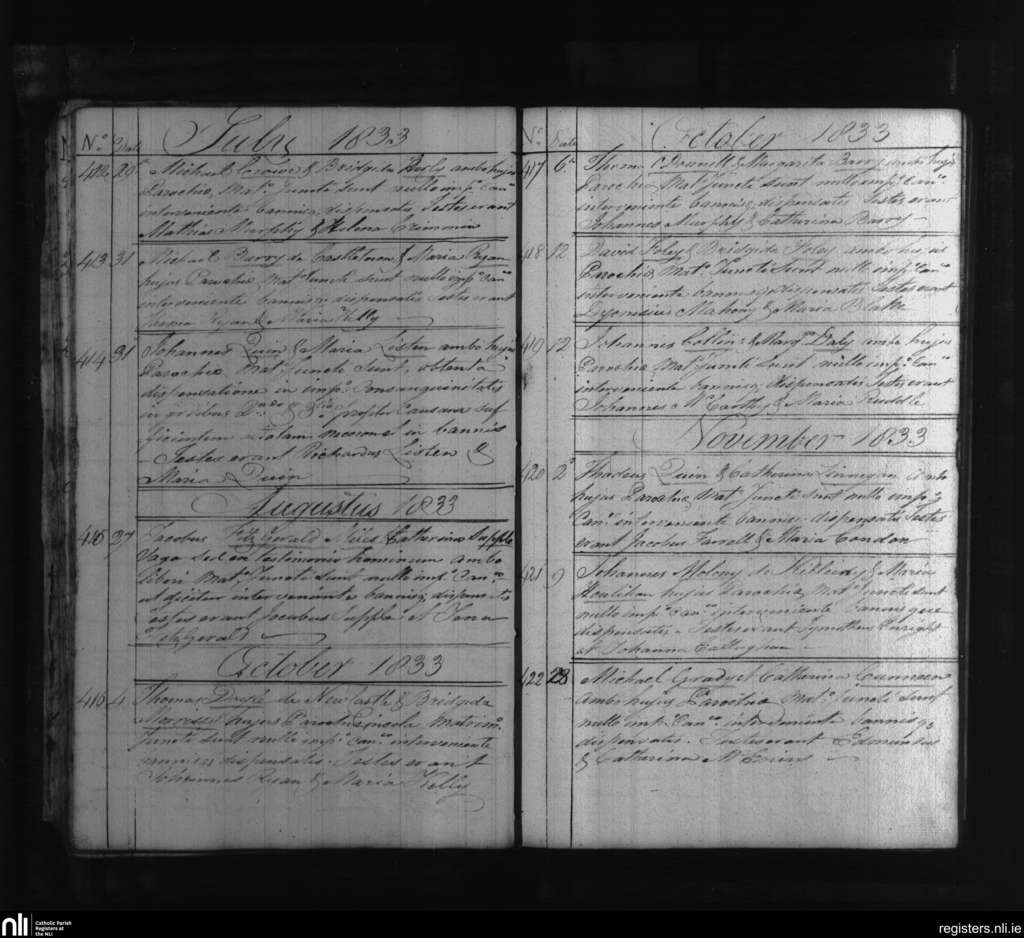 No. Date July 1833
412 26 Michael Crowe & Bridgida ambo hujus
Parochiæ Mat. Juncti Sunt nullo imp. Can.
interveniente bannisq. dispensatis Testes erant
Mathias Murphy & Helena Crimmin
413 31 Michael Barry de Castletown & Maria Ryan
hujus Parochiæ Mat. Juncti Sunt nullo imp. Can.
interveniente bannisq. dispensatis Testes erant
Ryan & Maria Kelly
414 31 Johannes Quin & Maria Listen ambo hujus
Parochiæ Mat. Juncti Sunt, obtenta
dispensatione in imp. Consanguinitatis
in gradibus & propter Causam suf
ficientem in bannis
Testes erant Richardus Listen &
Maria Quin
Augustus 1833
415 27 Jacobus Fitz Gerald Catherina Supple
Vaga sed ex testimonio hominum ambo
liberi Mat. Juncti Sunt nullo imp. Can.
ut dicitur interveniente bannisq. dispensatis
Testes erant Jacobus Supple et Anna
FitzGerald
October 1833
416 4 Thomas de Newcastle & Bridgida
hujus Parochiæ Matrim.
Juncti Sunt nullo imp. can. interveniente
bannisq. dispensatis. Testes erant
Johannes Ryan & Maria Kelly
No. Date October 1833
417 6 Thomas O'Donnell & Margarita Barry ambo hujus
Parochiæ Mat. Juncti Sunt nullo imp. Can.
interveniente bannisq. dispensatis Testes erant
Johannes Murphy & Catharina Barry
418 12 David Foley & Bridgida Foley ambo hujus
Parochiæ Mat. Juncti Sunt nullo imp. Can.
interveniente bannisq. dispensatis Testes erant
Dyonisius Mahony & Maria Blake
419 12 Johannes Collins & Marg. Daly ambo hujus
Parochiæ Mat. Juncti Sunt nullo imp. Can.
interveniente bannisq. dispensatis Testes erant
Johannes McCarthy & Maria Ruddle
November 1833
420 2 Thadeus Quin & Catherina Linnegan ambo
hujus Parochiæ Mat. Juncti Sunt nullo imp.
Can. interveniente bannisq. dispensatis Testes
erant Jacobus Farrell & Maria Condon
421 9 Johannes Molony de Killeedy & Maria
Houlihan hujus Parochiæ Mat. Juncti Sunt
nullo imp. Can. interveniente bannis que
dispensatis. Testes erant Tymotheus Enright
et Johanna Callaghan
422 28 Michael Grady et Catherina
ambo hujus Parochiæ Mat. Juncti Sunt
nullo imp. Can. interveniente bannisq.
dispensatis. Testes erant Edmundus
& Catharina
nli Catholic Parish
Registers at
the NLI
registers.nli.ie